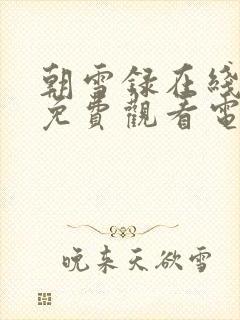 朝雪録在綫
免費觀看電
晚来天欲雪